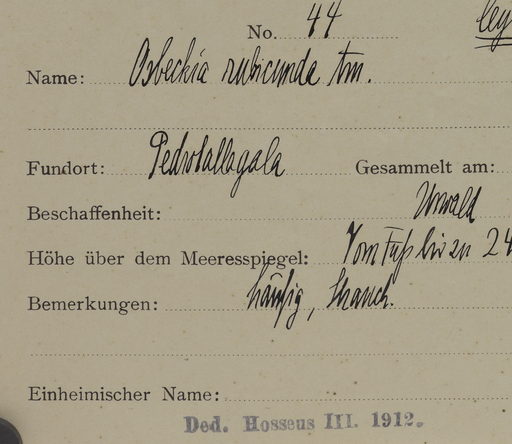 No. 44 Cey
Name: Osbeckia rubicunda Arn.
Fundort: Pedrotallagala Gesammelt am:
Beschaffenheit: Urwald
Höhe über dem Meeresspiegel: Vom Fuß bis zu 24
Bemerkungen: häufig, Strauch.
Einheimischer Name:
Ded. Hosseus III. 1912.